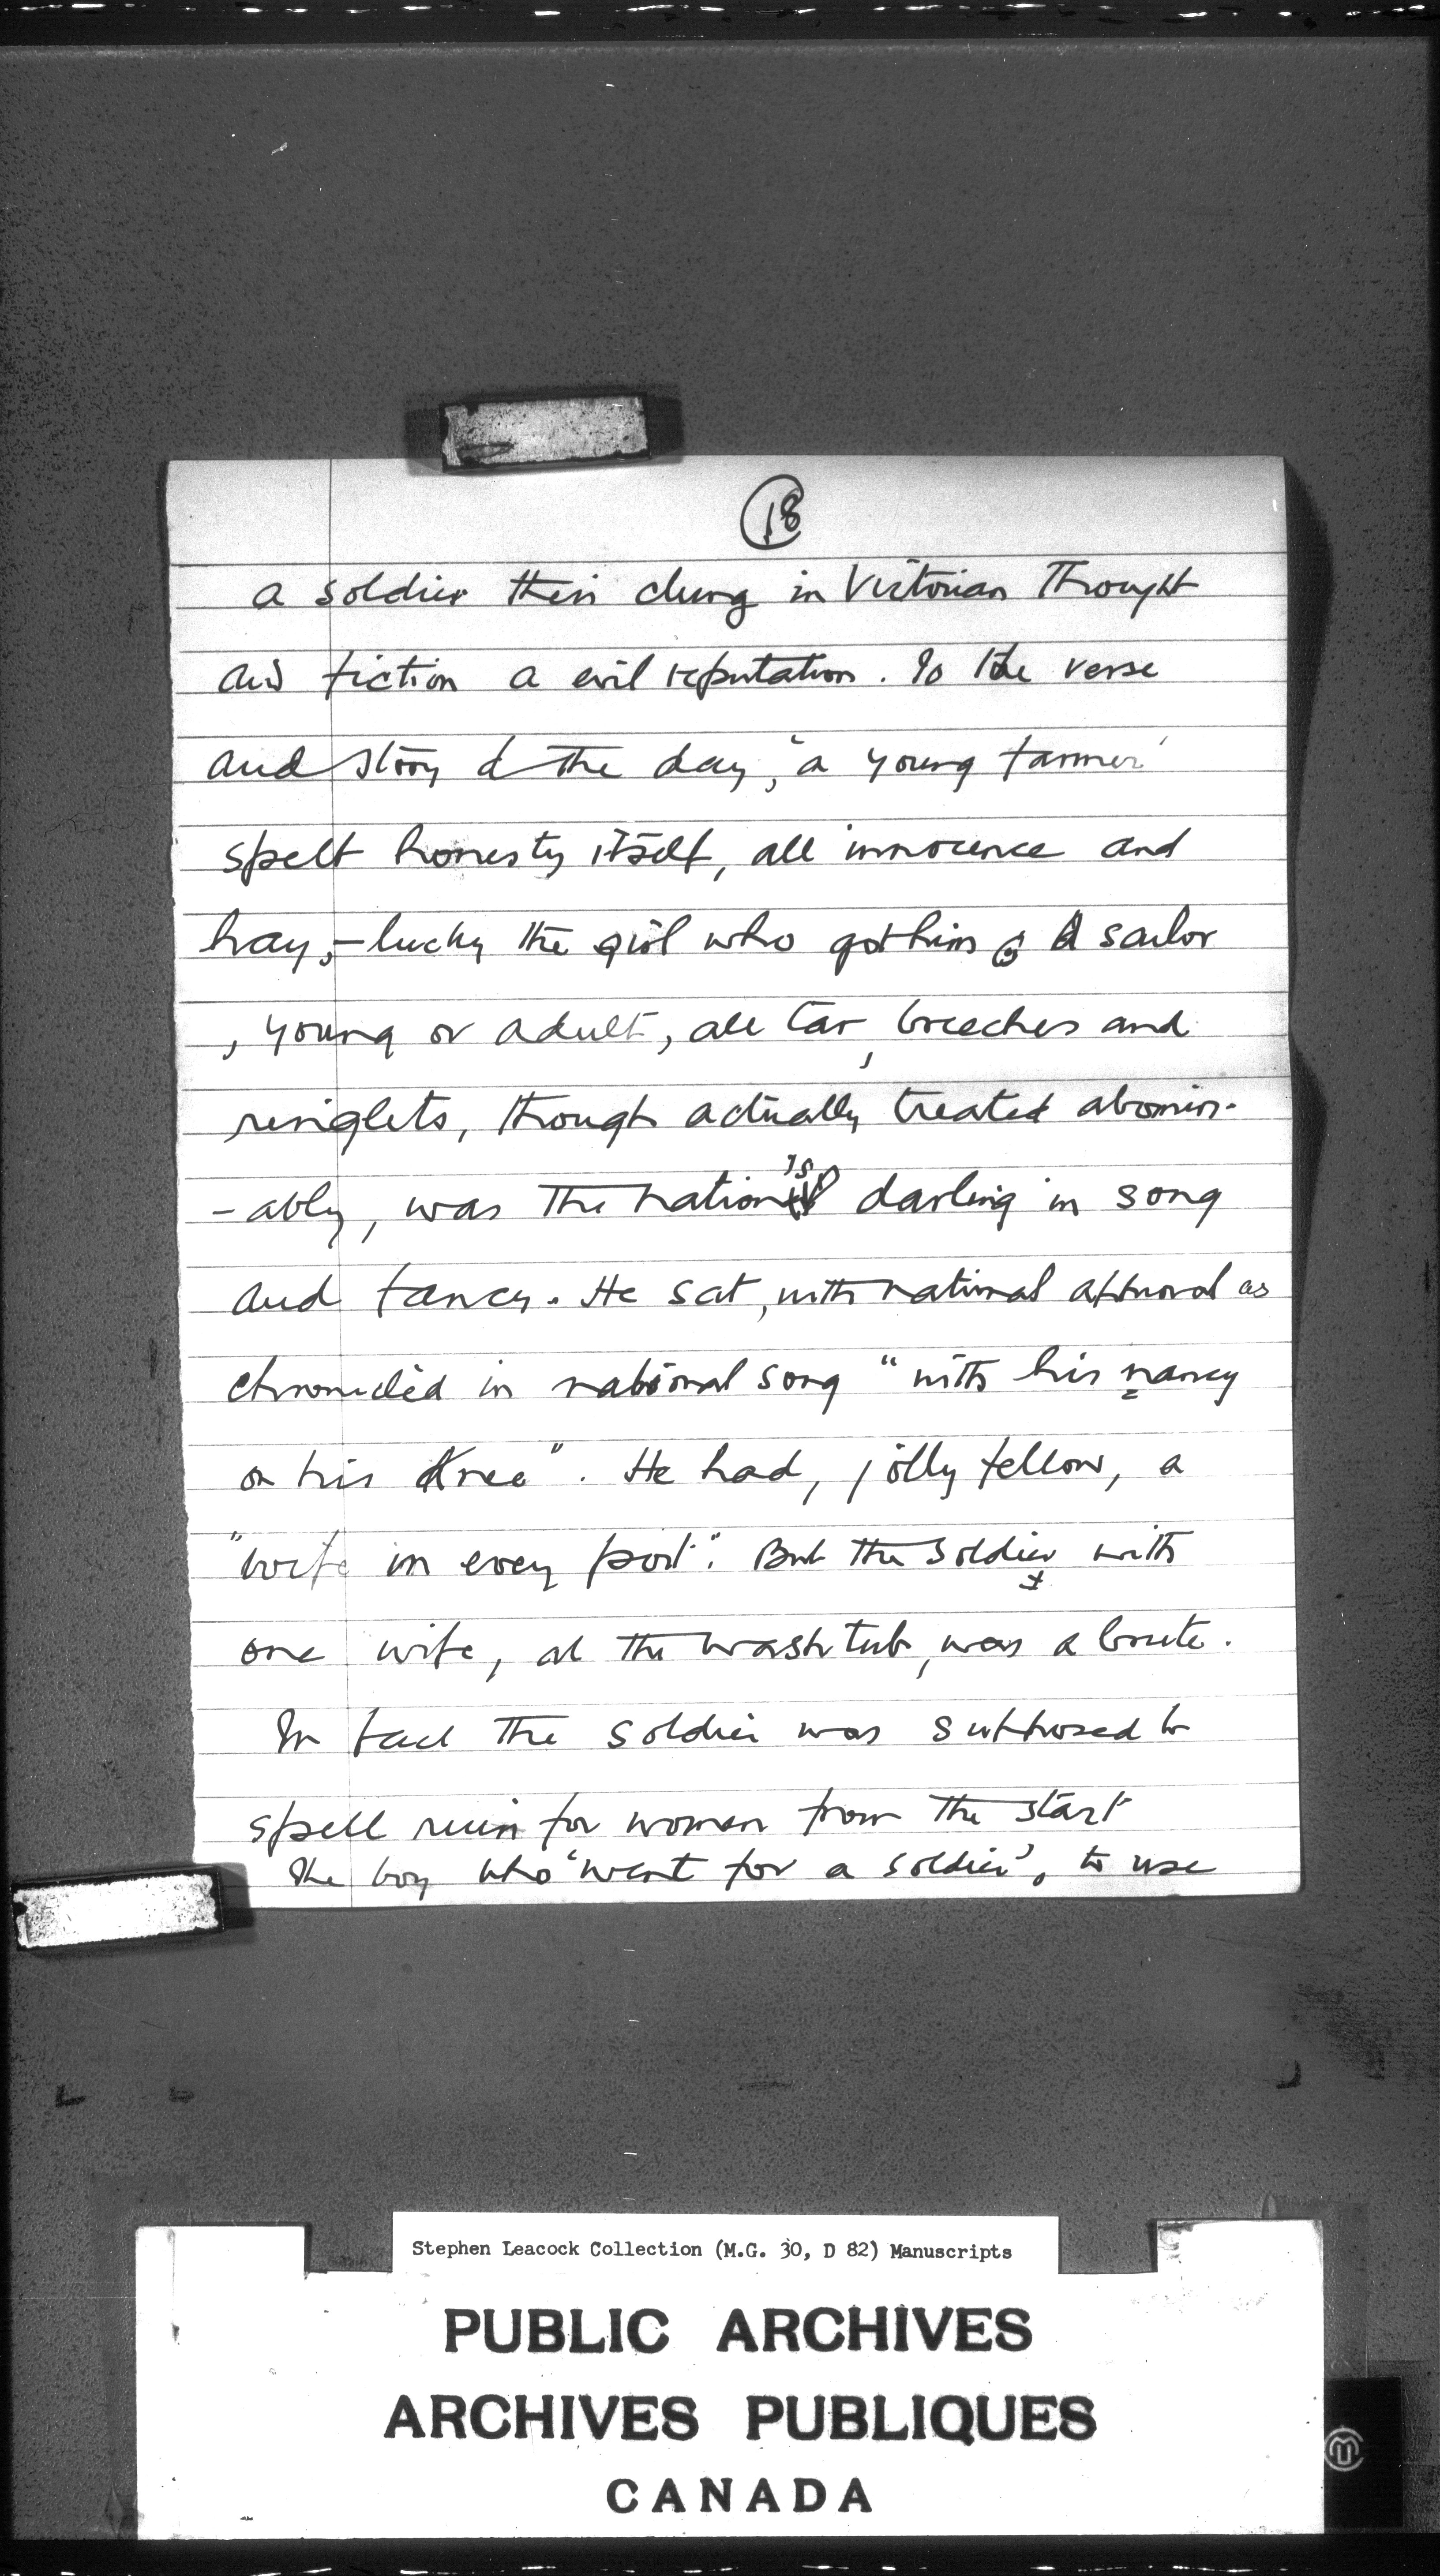 18
a soldier then clung in Victorian Thought
and fiction a evil reputation. To the verse
and story of the day, 'a young farmer'
spelt honesty itself, all innocence and
hay, - lucky the girl who got him. A sailor
, young or adult, all tar, breeches and
ringlets, though actually treated abomin-
- ably, was the nation's darling in song
and fancy. He sat, with national approval as
chronicled in national song "with his nancy
on his knee". He had, jolly fellow, a
"wife in every port". But the soldier with
one wife, at the washtub, was a brute.
In fact the soldier was supposed to
spell ruin for women from the start
The boy who 'went for a soldier', to use
Stephen Leacock Collection (M.G. 30, D 82) Manuscripts
PUBLIC ARCHIVES
ARCHIVES PUBLIQUES
CANADA